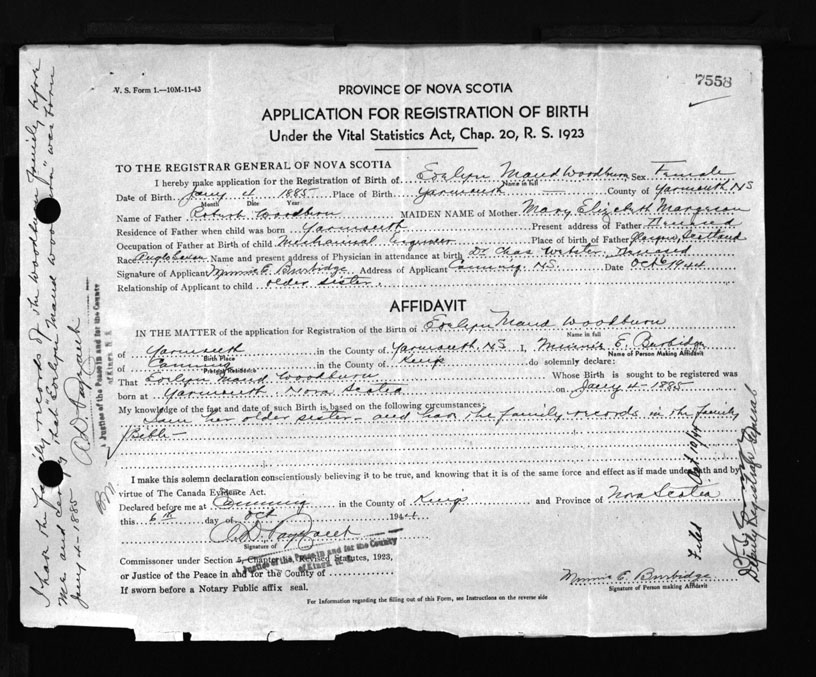 7558
V. S. Form 1.—10M-11-43
PROVINCE OF NOVA SCOTIA
APPLICATION FOR REGISTRATION OF BIRTH
Under the Vital Statistics Act, Chap. 20, R. S. 1923
TO THE REGISTRAR GENERAL OF NOVA SCOTIA
I hereby make application for the Registration of Birth of Evelyn Maud Woodburn Sex Female
Name in full
Date of Birth Jany 4 1885 Place of Birth Yarmouth County of Yarmouth NS
Month Date Year
Name of Father Robert Woodburn MAIDEN NAME of Mother Mary Elizabeth
Residence of Father when child was born Yarmouth Present address of Father Deceased
Occupation of Father at Birth of child Mechanical Engineer Place of birth of Father Glasgow, Scotland
Race Name and present address of Physician in attendance at birth Dr Chas Webster, Deceased
Signature of Applicant Minnie E. Burbidge Address of Applicant Canning, N.S. Date Oct 6 1944
Relationship of Applicant to child older sister
AFFIDAVIT
IN THE MATTER of the application for Registration of the Birth of Evelyn Maud Woodburn
Name in full
of Yarmouth in the County of Yarmouth, N.S I, Minnie E. Burbidge
Birth Place Name of Person Making Affidavit
of Canning in the County of Kings do solemnly declare:
Present Residence
That Evelyn Maud Woodburn Whose Birth is sought to be registered was
born at Yarmouth Nova Scotia on Jany 4 - 1885
My knowledge of the fact and date of such Birth is based on the following circumstances:
I am her older sister - and have the family records in the family
Bible -
I make this solemn declaration conscientiously believing it to be true, and knowing that it is of the same force and effect as if made under oath and by
virtue of The Canada Evidence Act.
Declared before me at Canning in the County of Kings and Province of Nova Scotia
this 6th day of Oct 1944
Signature of
Commissioner under Section 5, Chapter Revised Statutes, 1923,
a Justice of the Peace in and for the County
of Kings N. S.
or Justice of the Peace in and for the County of
If sworn before a Notary Public affix seal.
Minnie E. Burbidge
Signature of Person making Affidavit
For Information regarding the filling out of this Form, see Instructions on the reverse side
I have the family records of the Woodburn family before
me and certify that "Evelyn Maud Woodburn" was born
Jany 4 - 1885
a Justice of the Peace in and for the County
of Kings N. S.
Filed Oct 10/44
Deputy Registrar General